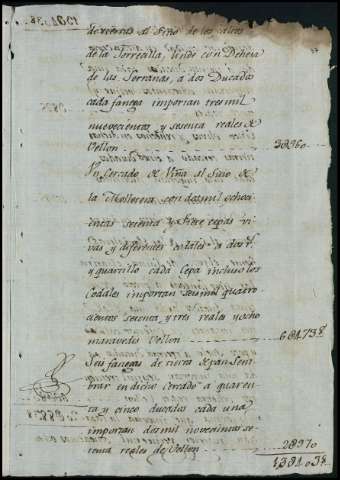 de tierras al Sitio de los
de la Torrecilla, linde con Dehesa
de las Serranas, a dos Ducados
cada fanega importan tres mil
nuevecientos y sesenta reales de
Vellon 3[~]960
Un Cercado de Viña al Sitio de
la Mollorera, con dos mil ochoci
entas setenta y siete cepas vi
vas y diferentes a dos rs
y quartillo cada Cepa incluso los
Codales importan seis mil quatro
cientos setenta, y tres reales y ocho
maravedis Vellon 8
Seis fanegas de tierra
brar en dicho Cercado a quaren
ta y cinco ducados cada una
importan dos mil novecientos se
tenta reales de Vellon 2[~]970